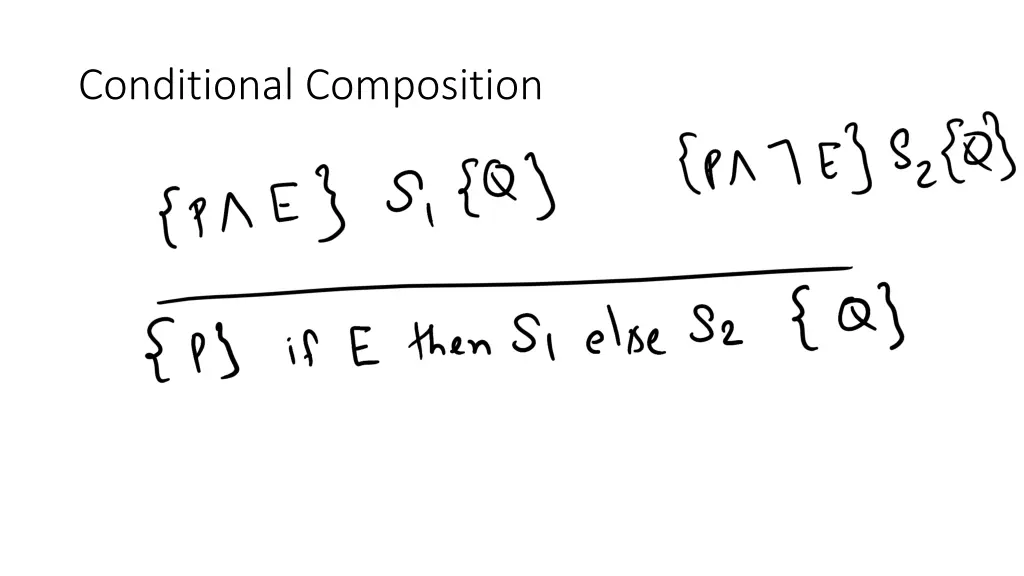 Conditional Composition
{P∧E} S₁ {Q} {P∧¬E} S₂ {Q}
{P} if E then S₁ else S₂ {Q}